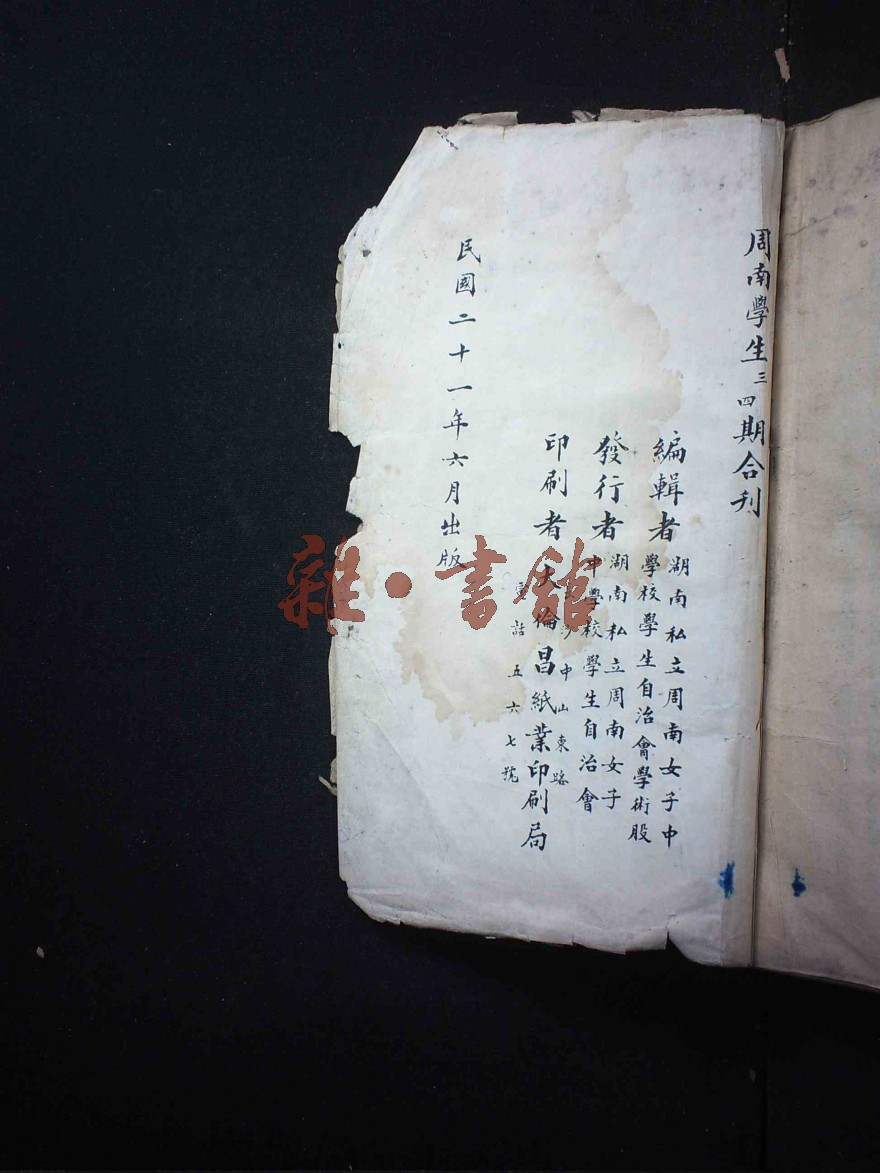 周南學生三四期合刊
編輯者
湖南私立周南女子中
學校學生自治會學術股
發行者
湖南私立周南女子
中學校學生自治會
印刷者大倫昌紙業印刷局
沙中山東路
電話五六七號
民國二十一年六月出版
雜·書館